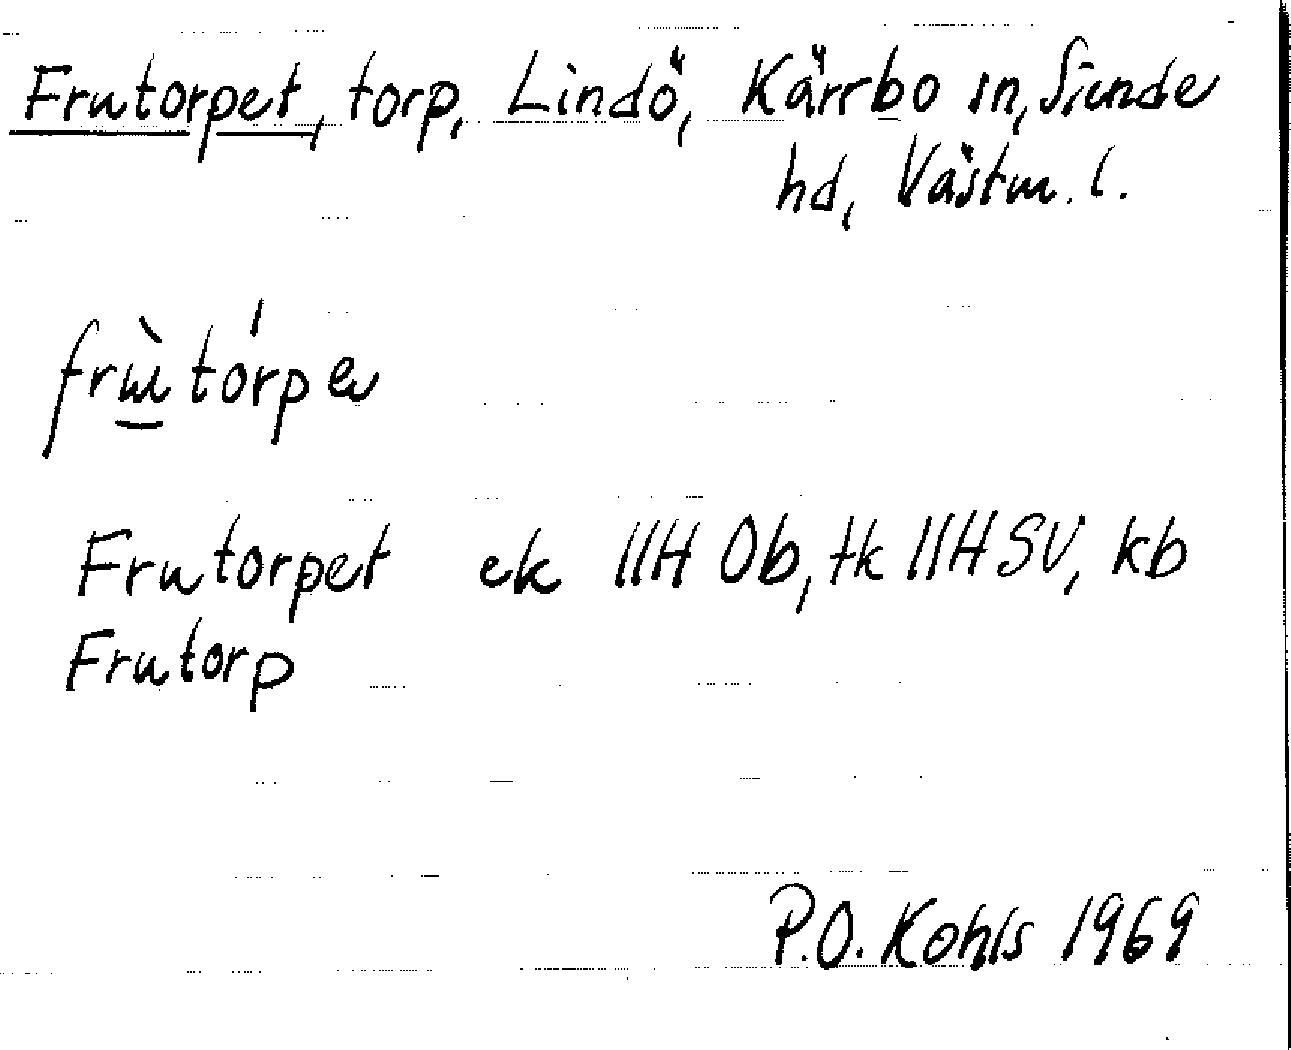 Frutorpet, torp, Lindö, Kärrbo sn, Siende
hd, Västm. l.
frɯ̀tórpə
Frutorpet ek 11H 0b, tk 11H SV, kb
Frutorp
P.O. Kohls 1969